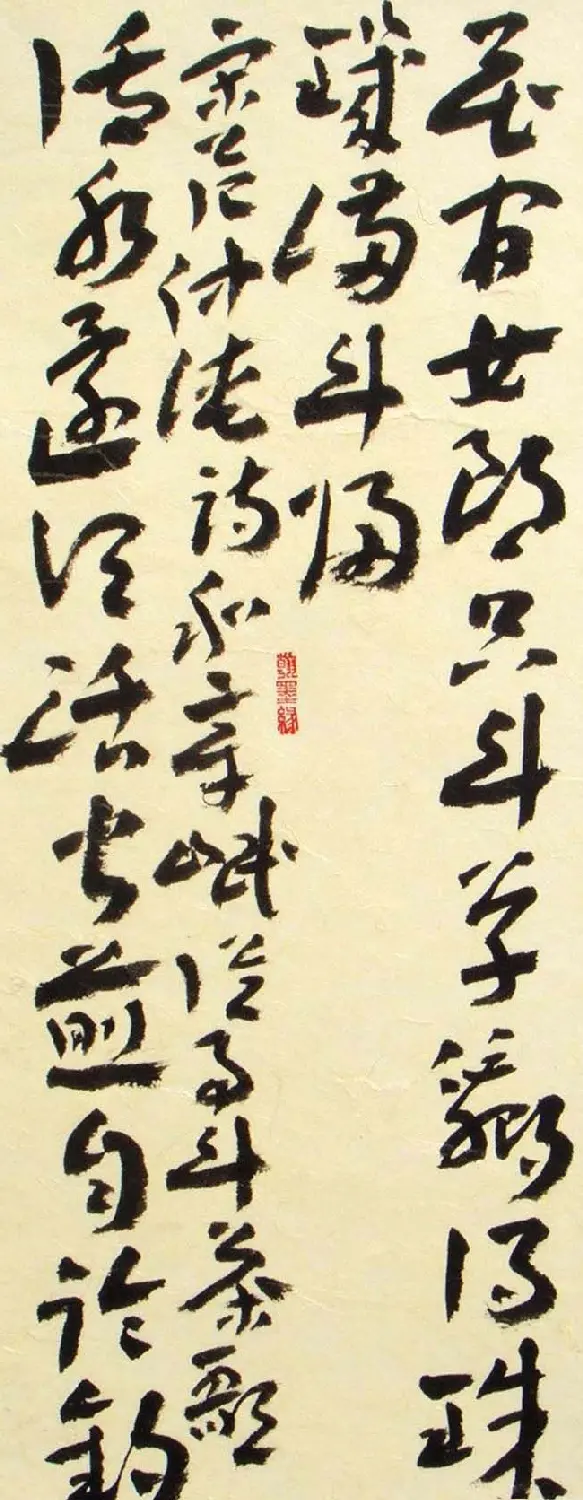 花間女郎只斗草贏得珠
璣滿斗歸
宋范仲淹詩和章岷從事斗茶歌
活水還須活火煎自臨釣
翰墨緣